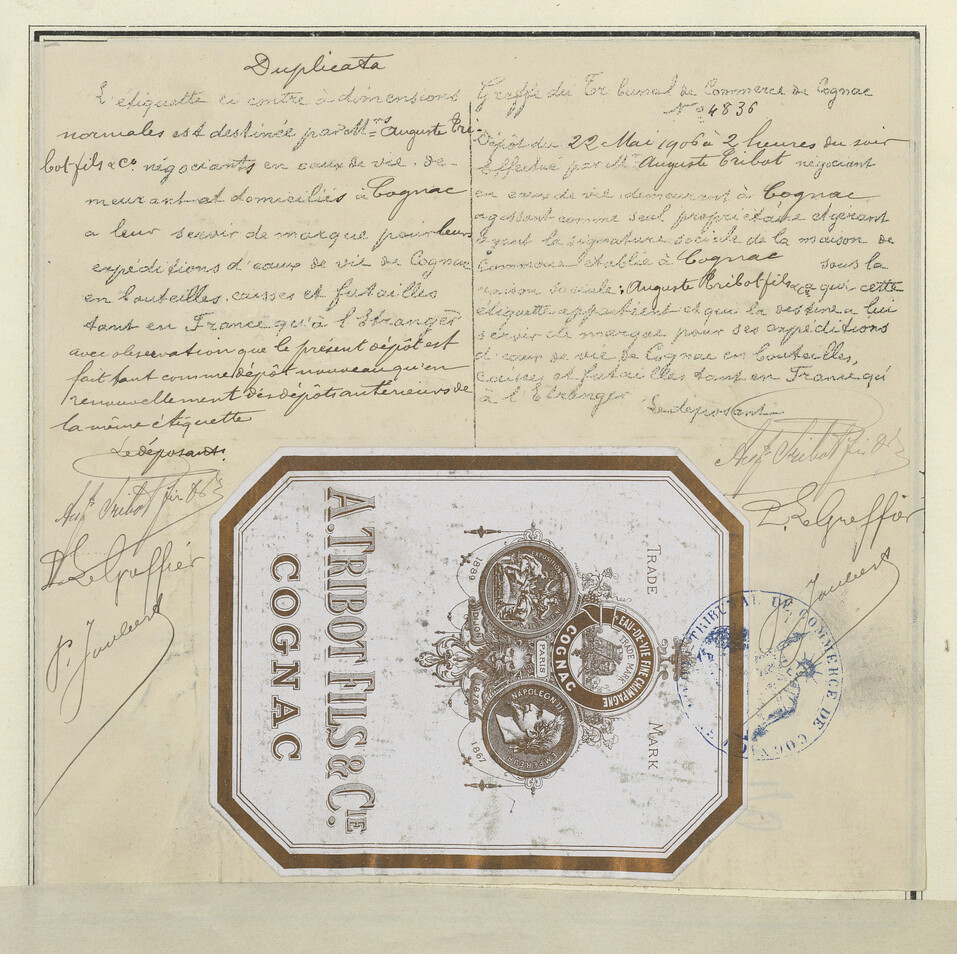 Duplicata
L'étiquette ci contre à dimensions
normales est destinée par Mrs Auguste Tri-
bot fils & Co. négociants en eaux de vie. de-
meurant et domiciliés à Cognac
a leur servir de marque pour leurs
expéditions d'eaux de vie de Cognac
en bouteilles. caisses et futailles
tant en France qu'à l'Etranger
avec observation que le présent dépôt est
fait tant comme dépôt nouveau qu'en
renouvellement des dépôts antérieurs de
la même étiquette
Le déposant.
Augte Tribot fils & Co
Le Greffier
P. Joubert
Greffe du Tribunal de Commerce de Cognac
No 4836
Dépôt du 22 Mai 1906 à 2 heures du soir
Effectué par Mr Auguste Tribot négociant
en eaux de vie. demeurant à Cognac
agissant comme seul propriétaire et gérant
ayant la signature sociale de la maison de
Commerce établie à Cognac sous la
raison sociale: Auguste Tribot fils & Co a qui cette
étiquette appartient et qui la destine a lui
servir de marque pour ses expéditions
d'eaux de vie de Cognac en bouteilles,
caisses et futailles tant en France qu'
à l'Etranger
Le déposant
Augte Tribot fils & Co
Le Greffier
Joubert
TRIBUNAL DE COMMERCE DE COGNAC
TRADE MARK
EAU-DE-VIE FINE CHAMPAGNE
TRADE MARK
COGNAC
EXPOSITION
1889
PARIS
NAPOLEON III
EMPEREUR
1867
A. TRIBOT FILS & CIE.
COGNAC